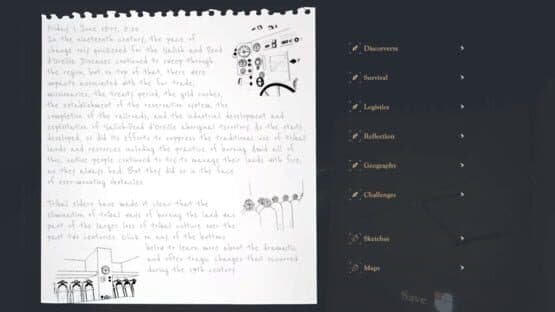 In the nineteenth century, the pace of
change only quickened for the Salish and Pend
d'Oreille. Diseases continued to sweep through
the region, but on top of that, there were
impacts associated with the fur trade,
missionaries, the treaty period, the gold rushes,
the establishment of the reservation system, the
completion of the railroads, and the industrial development and
exploitation of Salish-Pend d'Oreille aboriginal territory. As the state
developed, so did its efforts to suppress the traditional use of tribal
lands and resources including the practice of burning. Amid all of
this, native people continued to try to manage their lands with fire,
as they always had. But they did so in the face
of ever-mounting obstacles.
Tribal elders have made it clear that the
elimination of tribal ways of burning the land was
part of the larger loss of tribal culture over the
past two centuries. Click on any of the buttons
below to learn more about the dramatic
and often tragic changes that occurred
during the 19th century.
Discoveries
Survival
Logistics
Reflection
Geography
Challenges
Sketches
Maps
Save